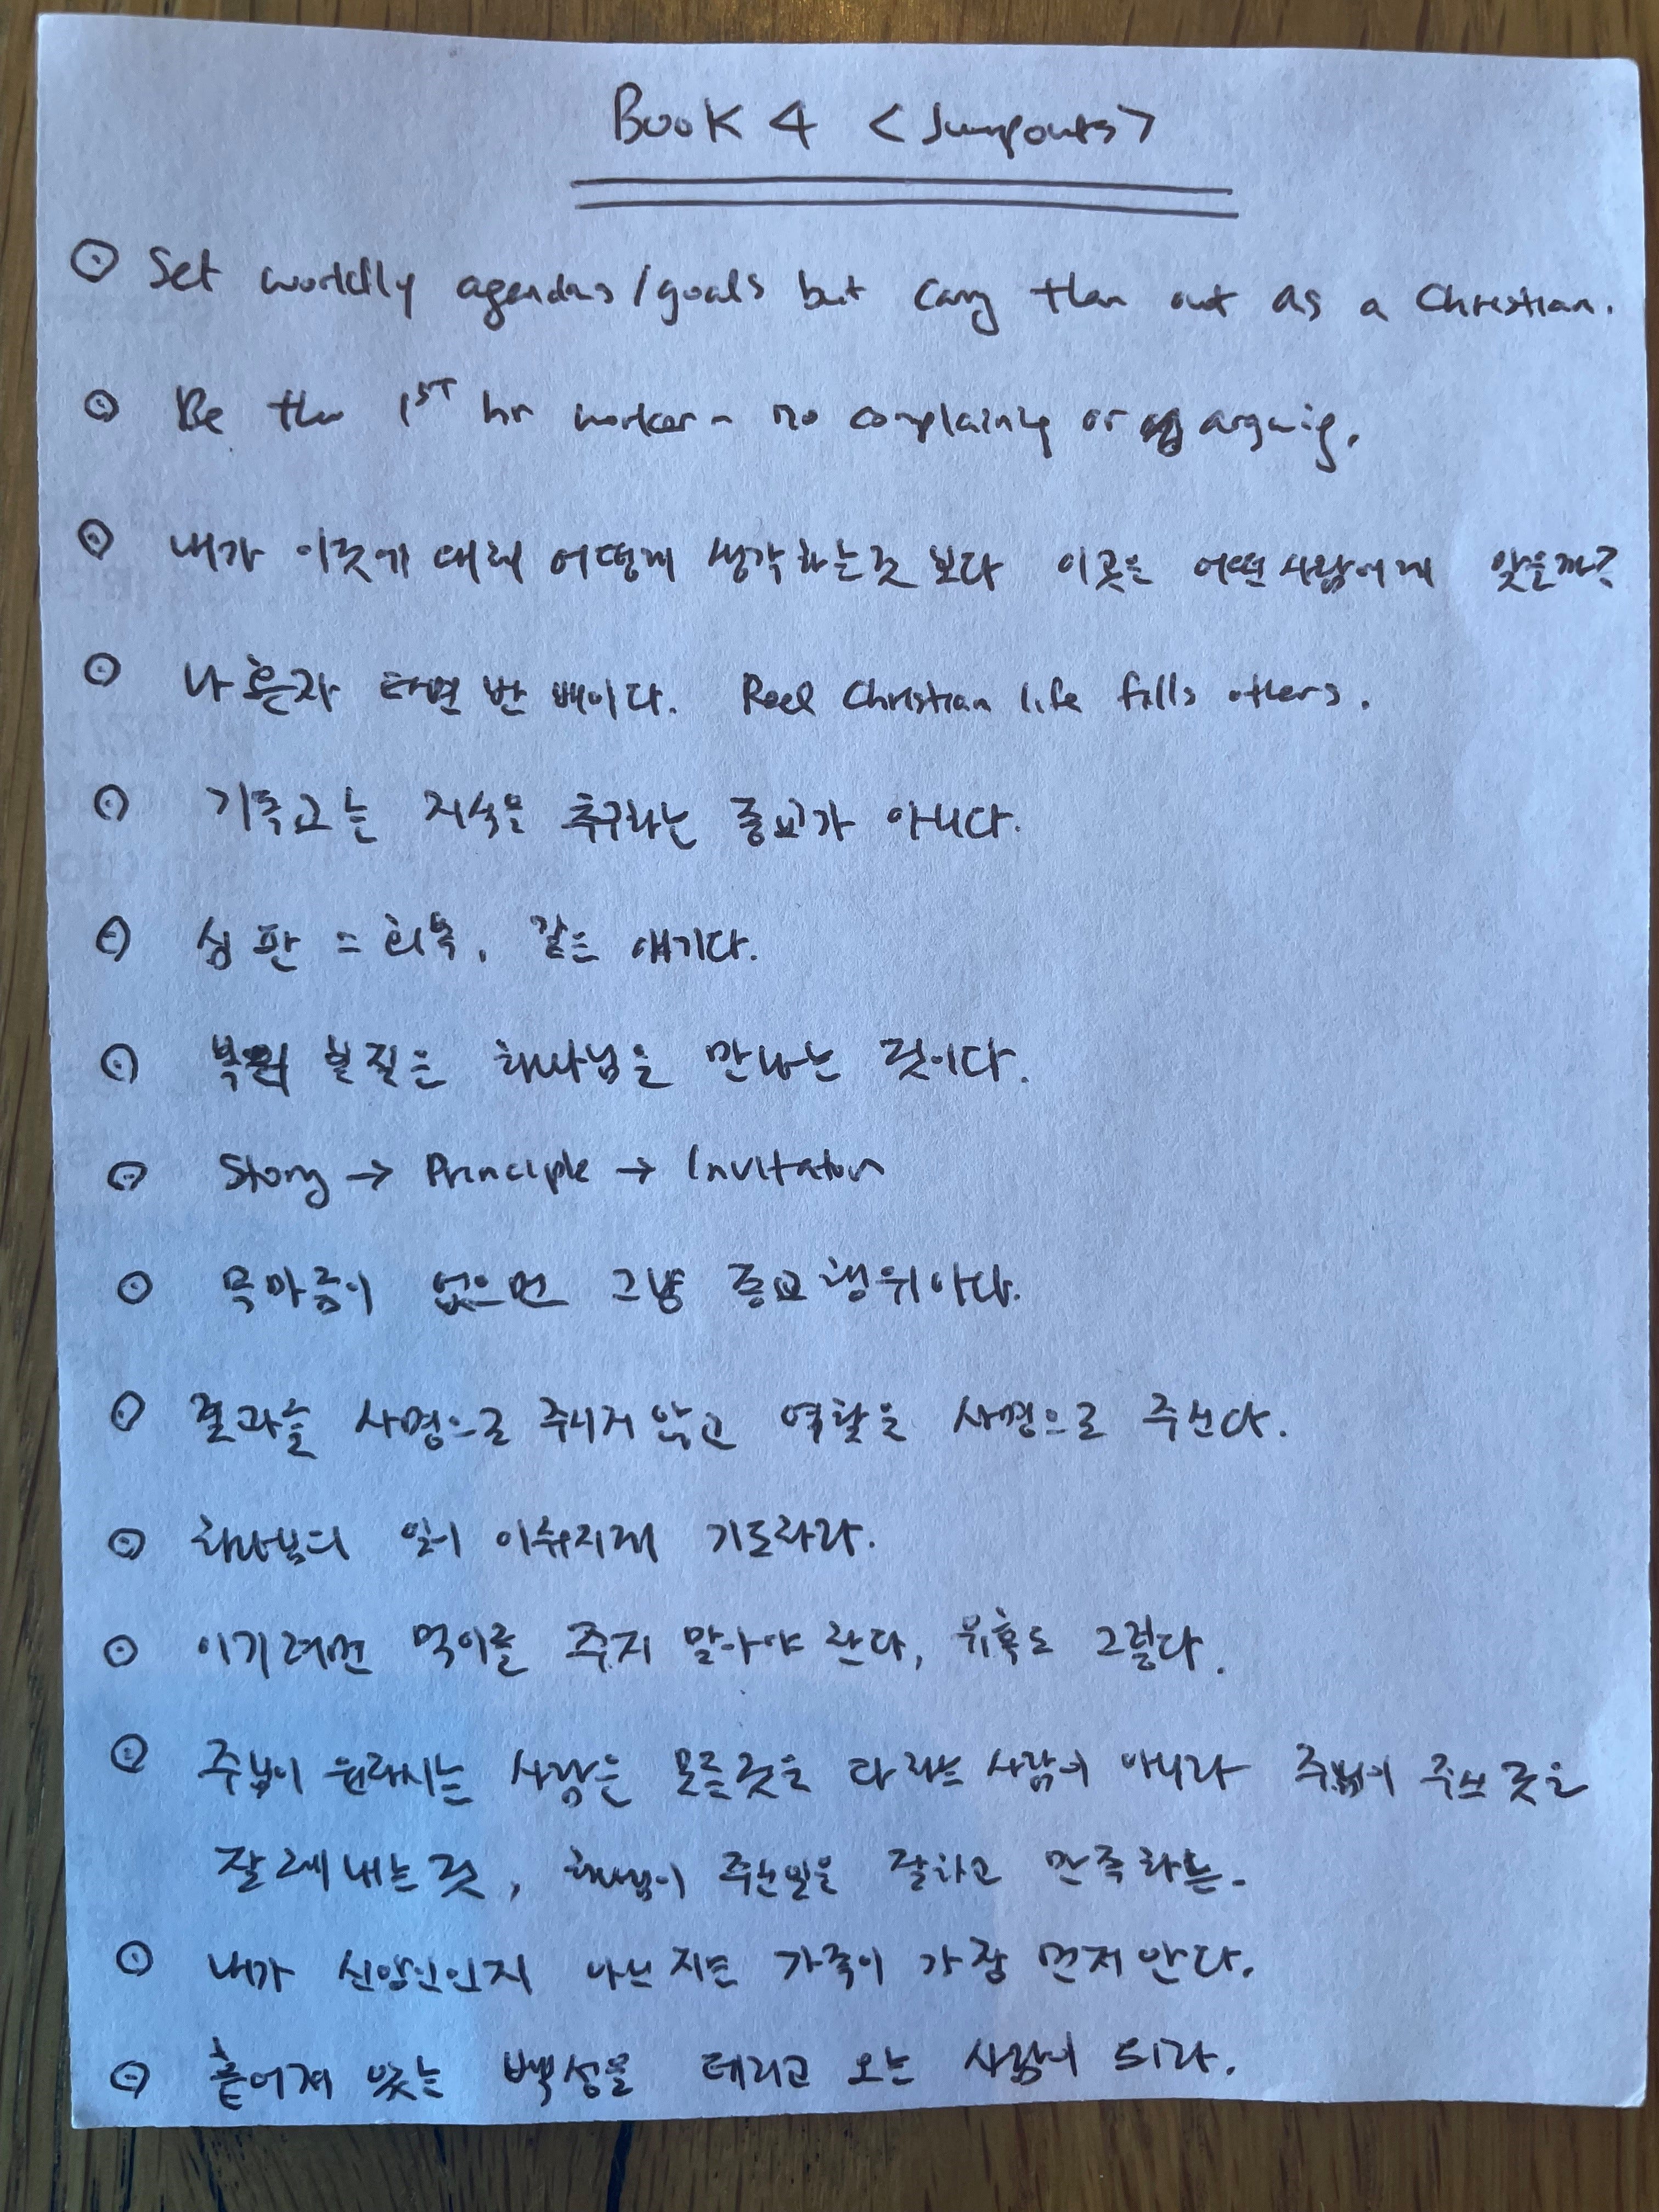 Book 4 <Jumpouts>
Set worldly agendas/goals but carry them out as a Christian.
Be the 1ST hr worker - no complaining or arguing.
내가 이곳에 대해 어떻게 생각하는것 보다 이곳은 어떤사람에게 맞을까?
나 혼자 타면 반 배이다. Reel Christian life fills others.
기독교는 지식을 추구하는 종교가 아니다.
심판 = 회복, 같은 얘기다.
복의 본질은 하나님을 만나는 것이다.
Story → Principle → Invitation
목마름이 없으면 그냥 종교행위이다.
결과를 사명으로 주시지 않고 역할을 사명으로 주신다.
하나님의 일이 이뤄지게 기도하라.
이기려면 먹이를 주지 말아야 한다, 유혹도 그렇다.
주님이 원하시는 사람은 모든것을 다 하는 사람이 아니라 주님이 주신 것을
잘 해내는것, 하나님이 주신일을 잘하고 만족하는.
내가 신앙인인지 아닌지는 가족이 가장 먼저 안다.
흩어져 있는 백성을 데리고 오는 사람이 되라.